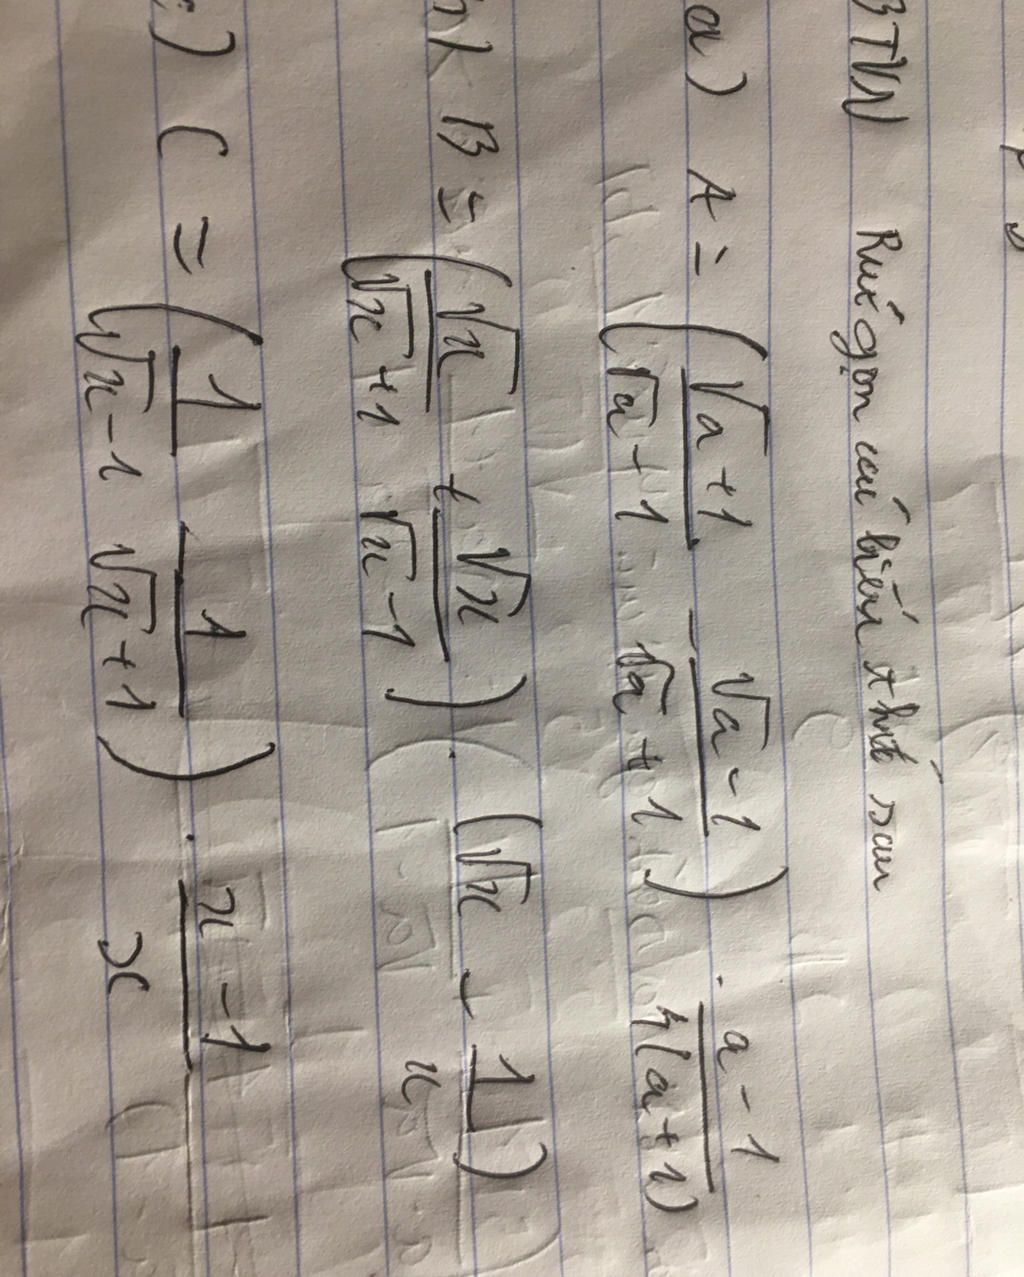 BTVN Rút gọn các biểu thức sau
a) A = ( (√a+1)/(√a+1) - (√a-1)/(√a+1) ) . (a-1)/(4(a+1))
b) B = ( √x/(√x+1) + √x/(√x-1) ) . (√x - 1/x)
c) C = ( 1/(√x-1) - 1/(√x+1) ) . (x-1)/x